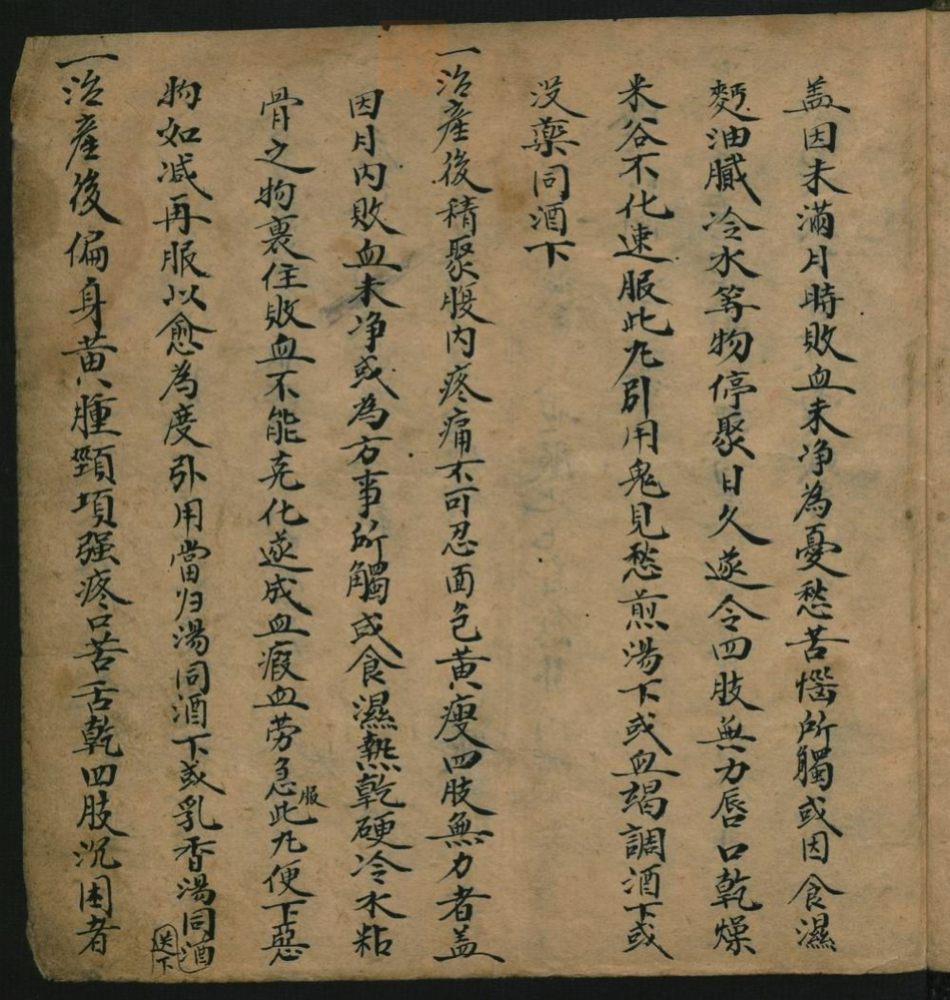 盖因未滿月時敗血未净為憂愁苦惱所觸或因食濕
麪油膩冷水等物停聚日久遂令四肢無力唇口乾燥
米谷不化速服此九引用鬼見愁煎湯下或血竭調酒下或
没藥同酒下
一治產後積聚腹内疼痛不可忍面色黄瘦四肢無力者盖
因月内敗血未净或為方事所觸或食濕熱乾硬冷水粘
骨之物裹住敗血不能克化遂成血瘕血劳急服此九便下惡
物如减再服以愈為度引用當归湯同酒下或乳香湯同酒送下
一治產後偏身黄腫頸項强疼口苦舌乾四肢沉困者